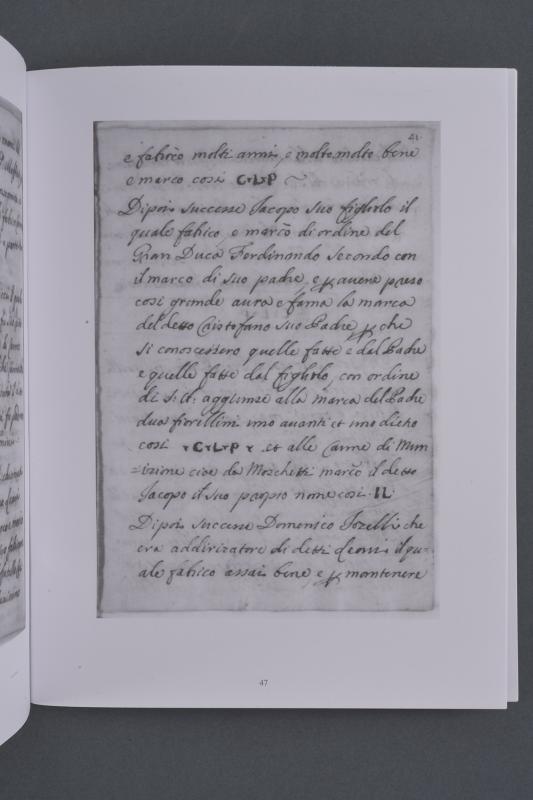 21.
e fabicò molti anni, e molto molto bene
e marco così C·L·P
Dipoi successe Jacopo suo figliolo il
quale fabico, e marcò di ordine del
Gran Duca Ferdinando secondo con
il marco di suo padre, e p avere preso
così grande aura e fama la marca
del detto Cristofano suo Padre p che
si conoscessero quelle fatte e dal Padre
e quelle fatte dal figliolo, con ordine
di S: A: aggiunse alla marca del Padre
dua fiorellini uno avanti et uno dieto
così ▾C▾L▾P▾ et alle Canne di Mun
=izione cioe da Moschetti marcò il detto
Jacopo il suo proprio nome così · IL ·
Dipoi successe Domenico che
era addirizatore di detti il qu-
ale fabico assai bene, e p mantenere
47